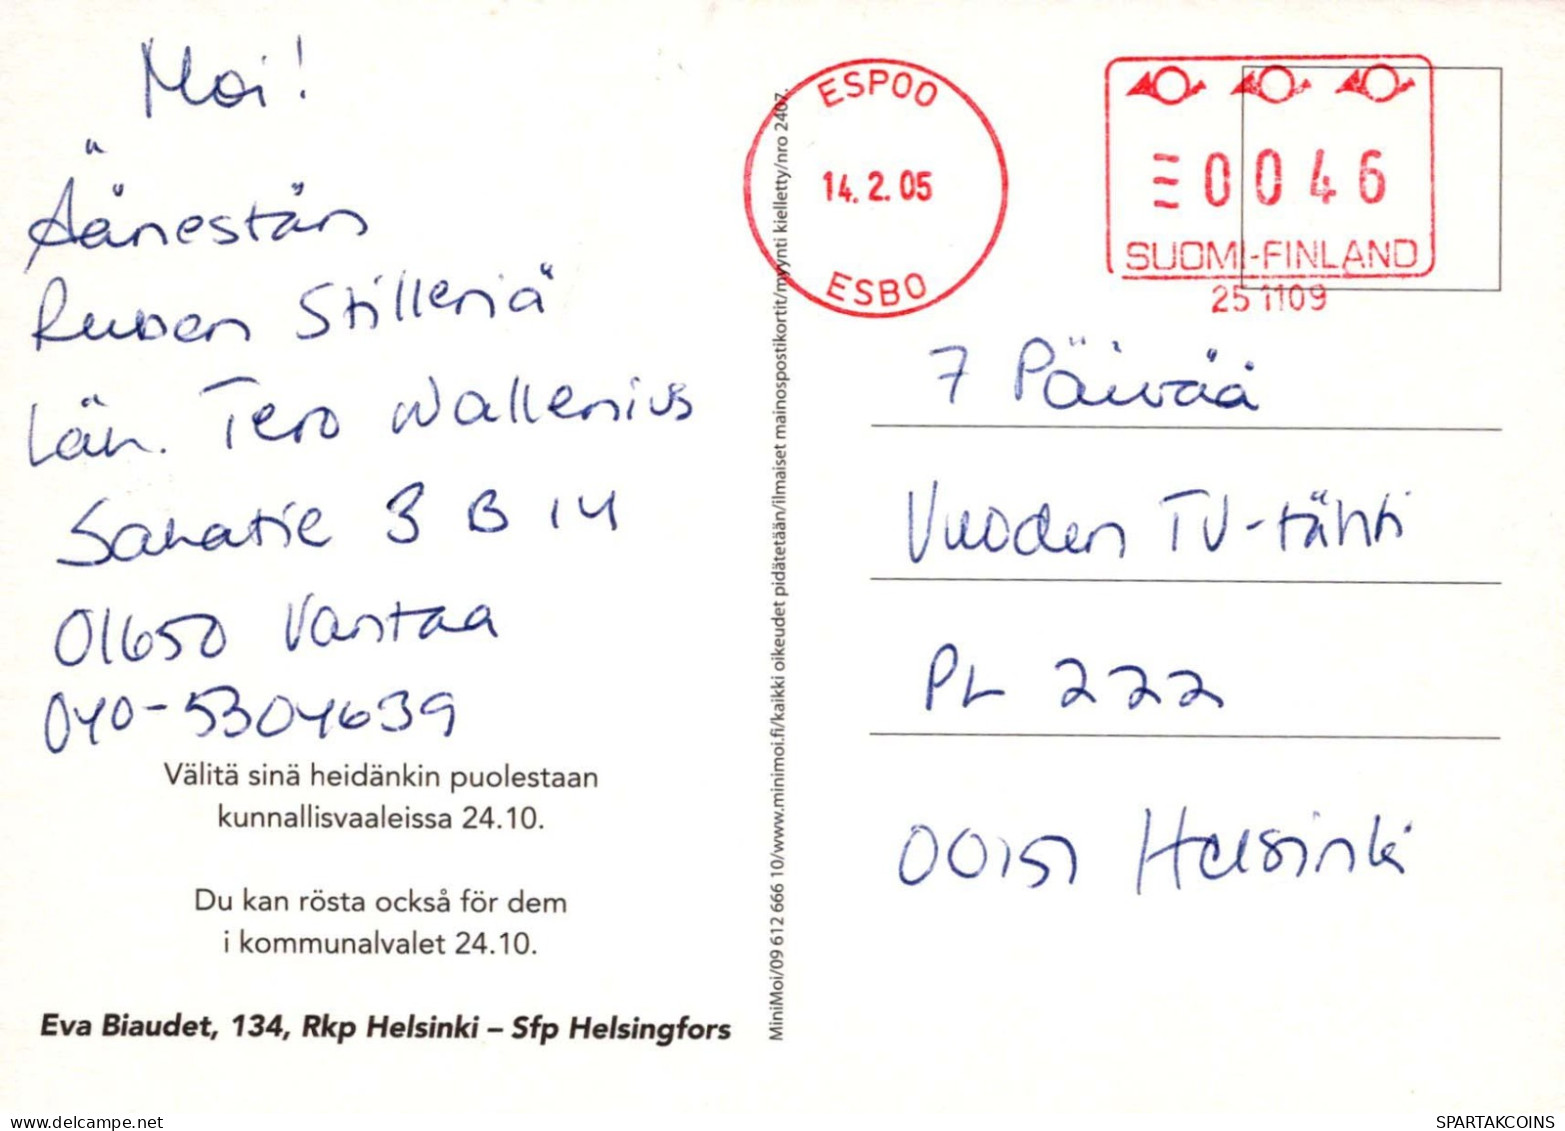 Moi!
Äänestän
Ruben Stilleriä
Läh. Tero Wallenius
Sahatie 3 B 14
01650 Vantaa
040-5304639
Välitä sinä heidänkin puolestaan
kunnallisvaaleissa 24.10.
Du kan rösta också för dem
i kommunalvalet 24.10.
Eva Biaudet, 134, Rkp Helsinki – Sfp Helsingfors
MiniMoi/09 612 666 10/www.minimoi.fi/kaikki oikeudet pidätetään/ilmaiset mainospostikortit/myynti kielletty/nro 2407.
ESPOO
14.2.05
ESBO
0046
SUOMI-FINLAND
251109
7 Päivää
Vuoden TV-tähti
PL 222
00151 Helsinki
delcampe.net
SPARTAKCOINS